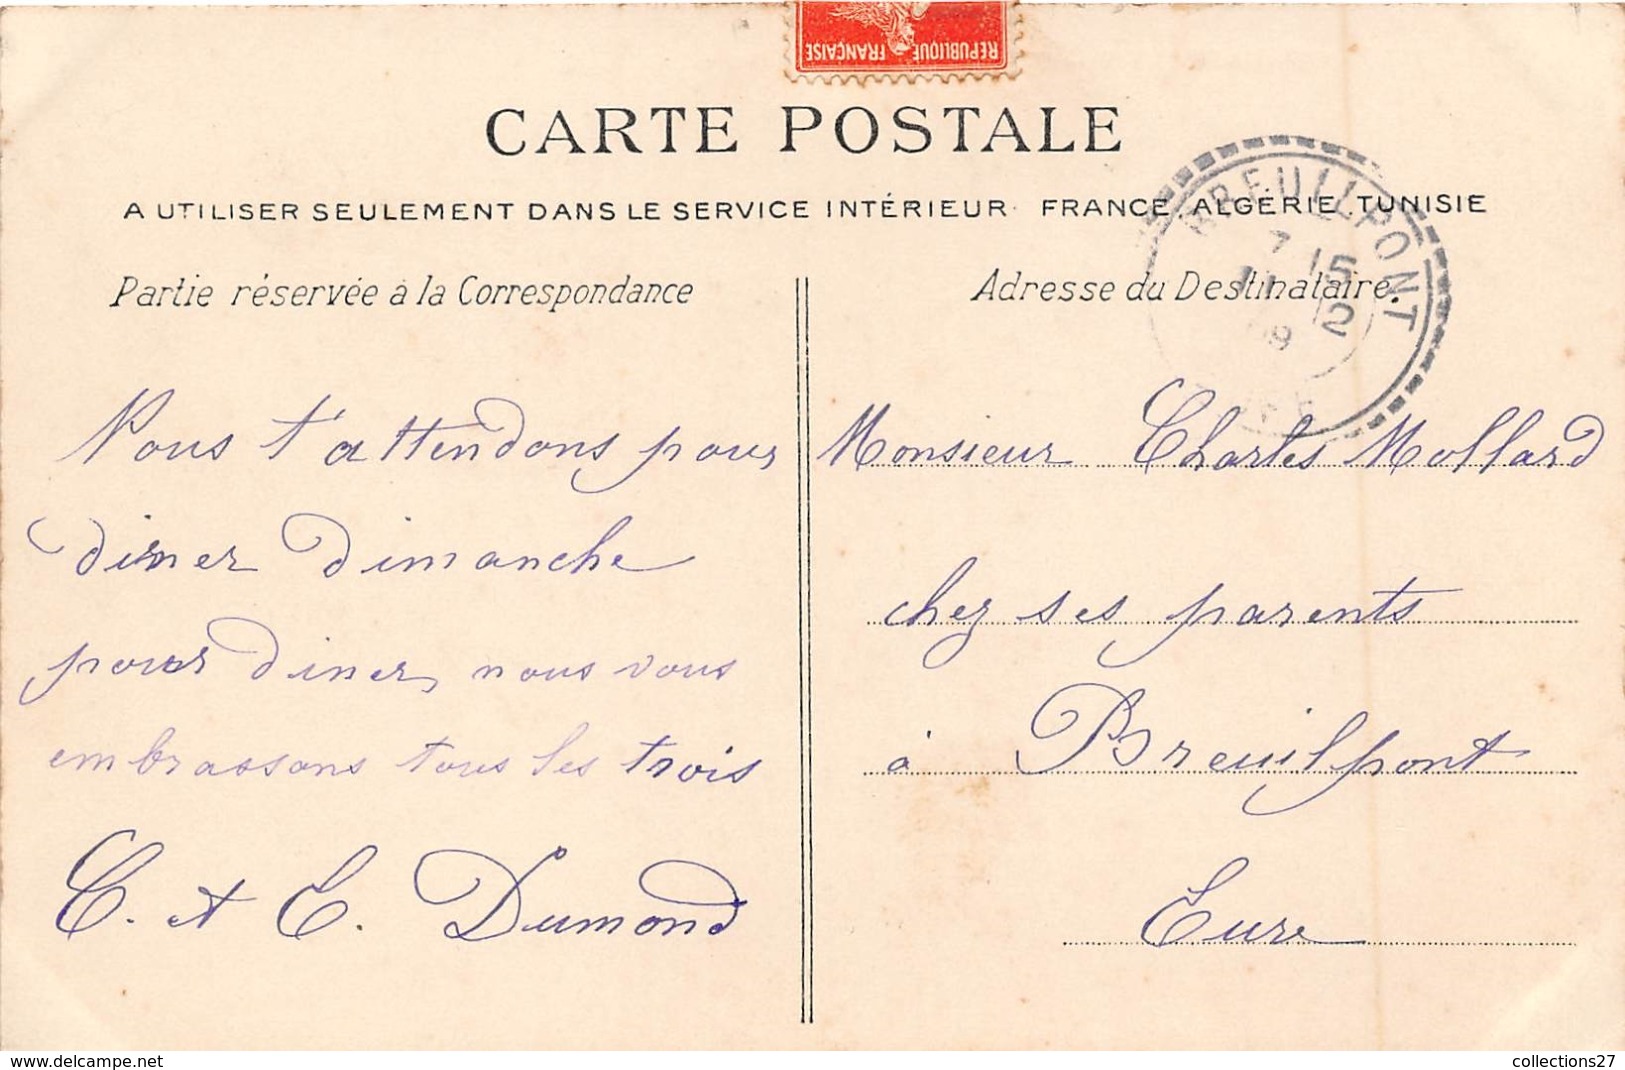 REPUBLIQUE FRANÇAISE
CARTE POSTALE
A UTILISER SEULEMENT DANS LE SERVICE INTÉRIEUR FRANCE. ALGÉRIE. TUNISIE
BREUILLPONT
7 15
11 2
09
EURE
Partie réservée à la Correspondance
Nous t'attendons pour
diner dimanche
pour diner, nous vous
embrassons tous les trois
C. et E. Dumond
Adresse du Destinataire.
Monsieur Charles Mollard
chez ses parents
à Breuilpont
Eure
www.delcampe.net
collections27